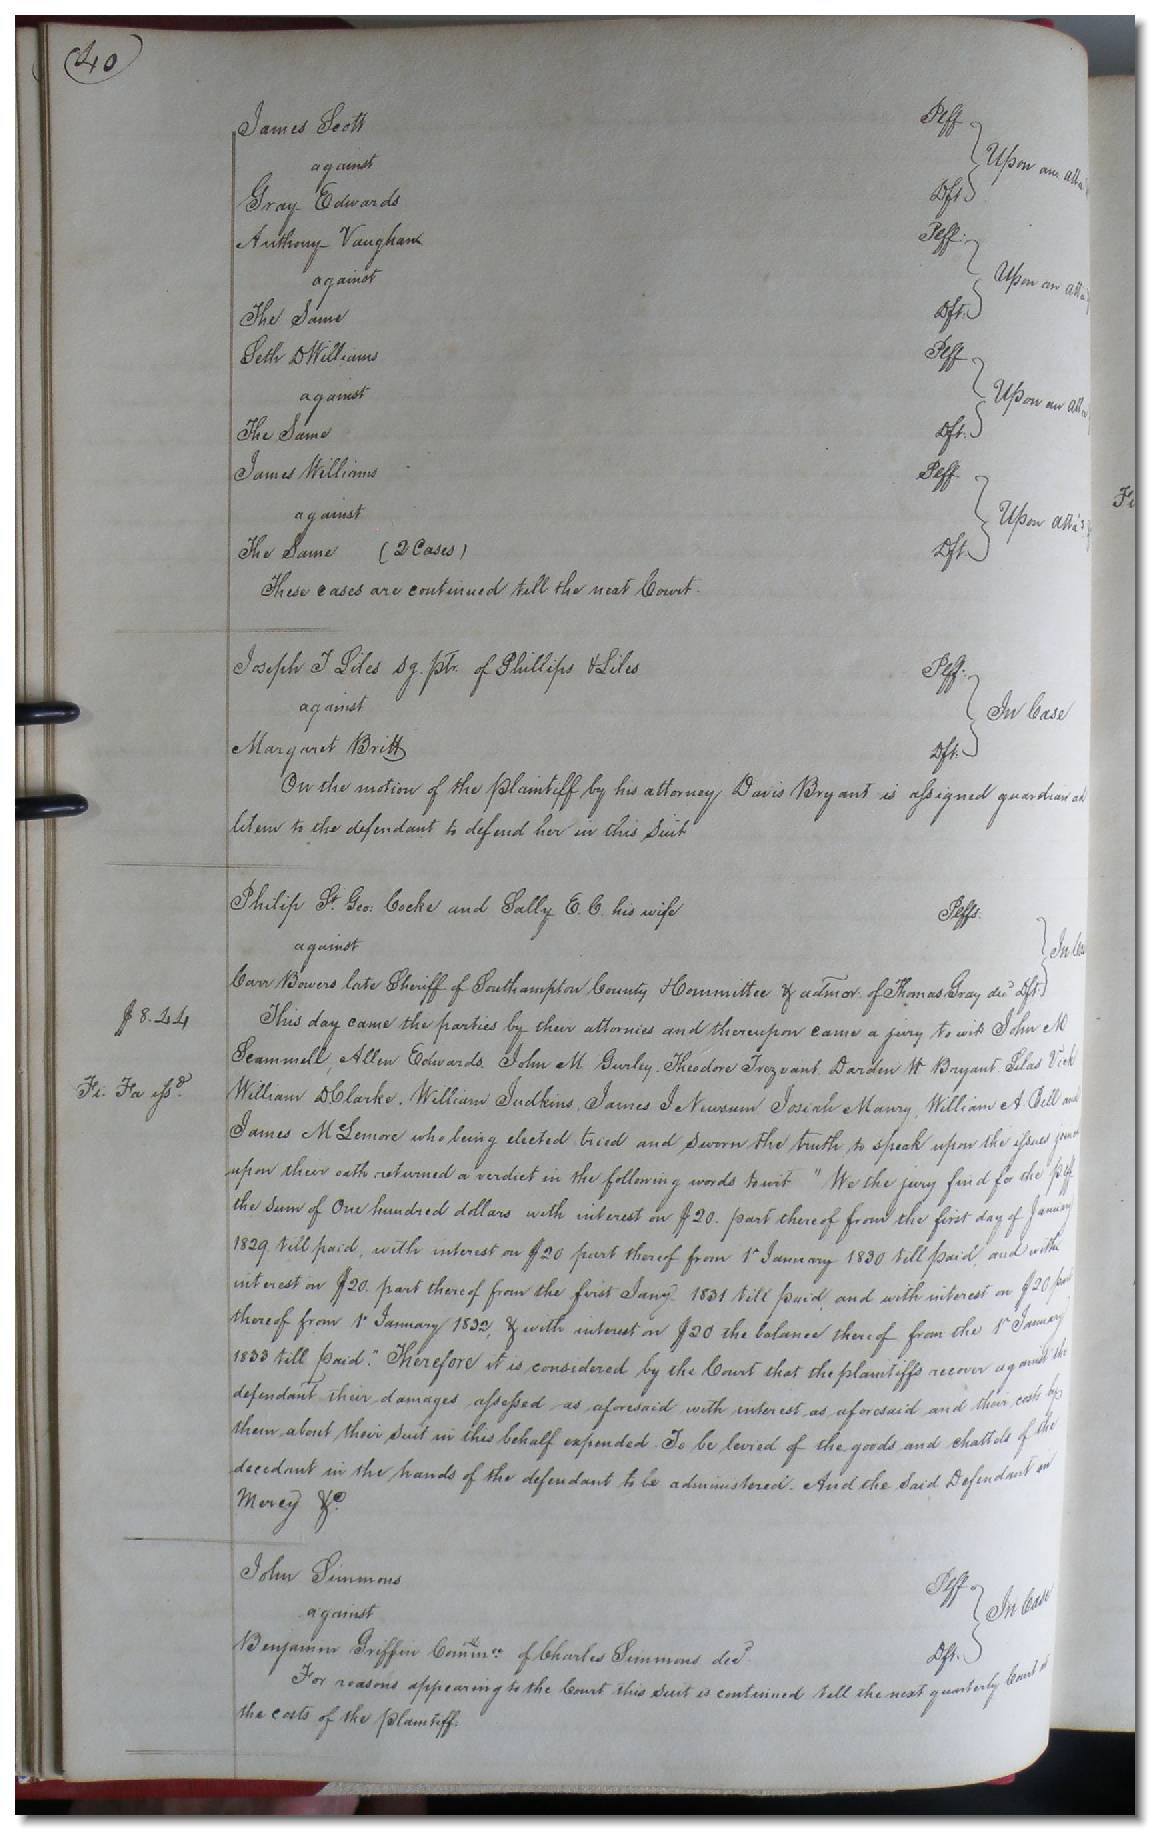 40
James Scott Plff
against Upon an atta
Gray Edwards Dft
Anthony Vaughan Plff.
against Upon an atta
The Same Dft.
Seth D Williams Plff
against Upon an atta
The Same Dft.
James Williams Plff
against Upon atta
The Same (2 Cases) Dft
These cases are continued till the next Court.
Fi
Joseph T Liles sg. ptr. of Phillips & Liles Plff.
against In Case
Margaret Britt Dft.
On the motion of the plaintiff by his attorney Davis Bryant is assigned guardian ad
litem to the defendant to defend her in this suit
Philip St. Geo. Cocke and Sally E. C. his wife Plffs.
against In Ca
Carr Bowers late Sheriff of Southampton County & Committee & admor. of Thomas Gray decd Dft.
$8.44
This day came the parties by their attornies and thereupon came a jury to wit John M
Scammell, Allen Edwards. John M. Gurley. Theodore Trezvant. Darden W Bryant. Silas Vick
Fi. Fa issd.
William D Clarke. William Judkins, James J Newsum Josiah Maury, William A Bell and
James McLemore who being elected tried and sworn the truth to speak upon the issues joined
upon their oath returned a verdict in the following words towit "We the jury find for the Plff
the sum of One hundred dollars with interest on $20. part thereof from the first day of January
1829 till paid, with interest on $20 part thereof from 1st January 1830 till paid, and with
interest on $20. part thereof from the first Jany 1831 till paid, and with interest on $20 part
thereof from 1st January 1832, & with interest on $20 the balance thereof from the 1st January
1833 till paid." Therefore it is considered by the Court that the plaintiffs recover against the
defendant their damages assessed as aforesaid with interest as aforesaid and their costs by
them about their suit in this behalf expended. To be levied of the goods and chattels of the
decedant in the hands of the defendant to be administered. And the said Defendant in
Mercy &c.
John Simmons Plff
against In Case
Benjamin Griffin of Charles Simmons decd. Dft.
For reasons appearing to the Court this suit is continued till the next quarterly Court at
the costs of the plaintiff.